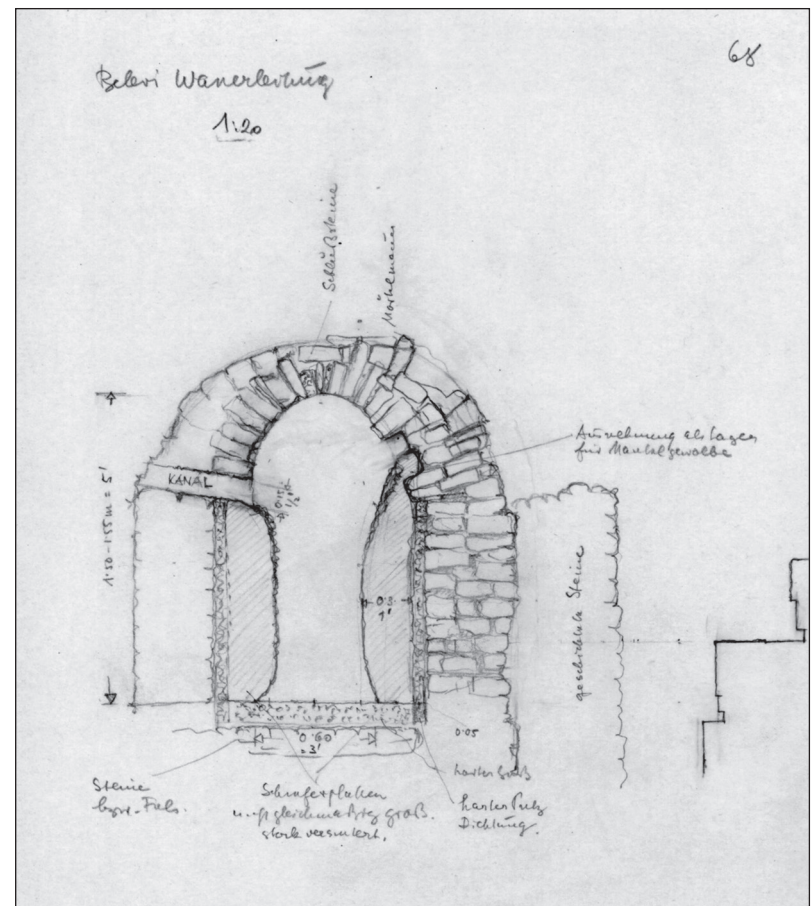 68
Belevi Wasserleitung
1:20
Schlußsteine
Mörtelmauer
Ausnehmung als Lager
für Mantelgewölbe
KANAL
0.15
1/2'
1.50-1.55 m = 5'
0.3
1'
geschichtete Steine
0.60
= 3'
0.05
Steine
bzw. Fels.
Schieferplatten
gleichmäßig groß.
stark versintert.
harter Guß
harter Putz
Dichtung.